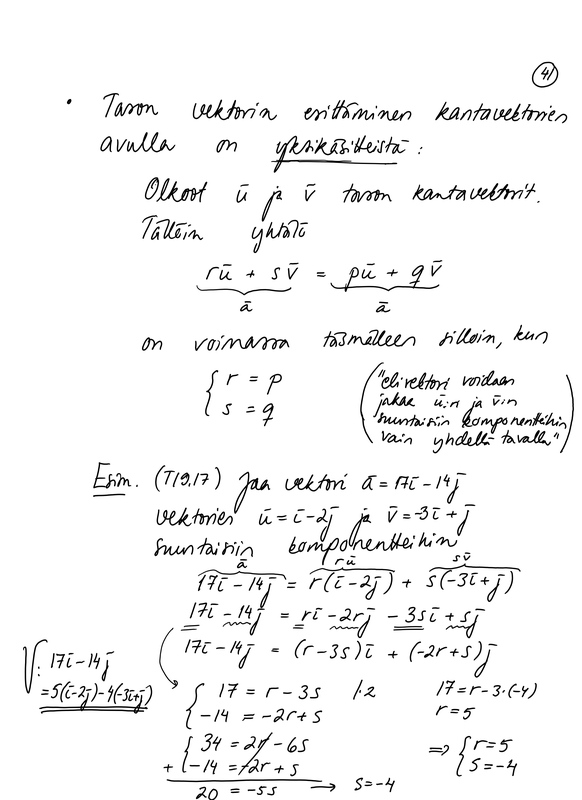 41
• Tason vektorin esittäminen kantavektorien
avulla on yksikäsitteistä :
Olkoot ū ja v̄ tason kantavektorit.
Tällöin yhtälö
rū + sv̄ = pū + qv̄
ā ā
on voimassa täsmälleen silloin, kun
{ r = p
{ s = q
("eli vektori voidaan
jakaa ū:n ja v̄:n
suuntaisiin komponentteihin
vain yhdellä tavalla")
Esim. (T19.17) Jaa vektori ā = 17ī - 14j̄
vektorien ū = ī - 2j̄ ja v̄ = -3ī + j̄
suuntaisiin komponentteihin
ā rū sv̄
17ī - 14j̄ = r(ī - 2j̄) + s(-3ī + j̄)
17ī - 14j̄ = rī - 2rj̄ - 3sī + sj̄
17ī - 14j̄ = (r - 3s)ī + (-2r + s)j̄
V: 17ī - 14j̄
= 5(ī - 2j̄) - 4(-3ī + j̄)
{ 17 = r - 3s |·2
{ -14 = -2r + s
{ 34 = 2r - 6s
+ { -14 = -2r + s
20 = -5s → s = -4
17 = r - 3·(-4)
r = 5
⇒ { r = 5
{ s = -4